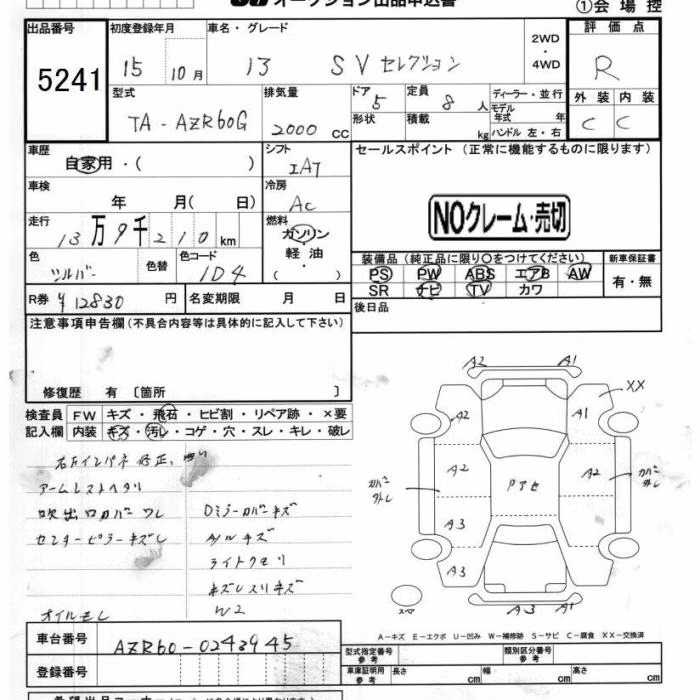 オークション出品申込書
①会場控
出品番号 初度登録年月 車名・グレード 2WD ・ 4WD 評価点
5241 15 10月 13 SVセレクション R
型式 排気量 ドア 5 定員 8人 ディーラー・並行 外装 内装
TA-AZR60G 2000cc 形状 積載 kg モデル年式 年 C C
ハンドル 左・右
車歴 シフト セールスポイント (正常に機能するものに限ります)
自家用・( ) IAT
車検 冷房
年 月( 日) AC
NOクレーム・売切
走行 燃料
13万9千210km ガソリン
軽油・
( )
色 色替 色コード 装備品 (純正品に限り○をつけてください) 新車保証書
シルバー 1D4 PS PW ABS エアB AW 有・無
SR ナビ TV カワ
R券 ¥12830円 名変期限 月 日 後日品
注意事項申告欄(不具合内容等は具体的に記入して下さい)
修復歴 有 〔箇所 〕
検査員 FW キズ・飛石・ヒビ割・リペア跡・×要
記入欄 内装 キズ・汚レ・コゲ・穴・スレ・キレ・破レ
右Fインパネ修正、
アームレストヘタリ
吹出口カバーワレ
センターピラーキズし
Dミラーカバーキズ
A/Wキズ
ライトクモリ
W2
オイルモレ
A2 A1
XX
A2 A1
A2 A2
カバー外レ Pアセ カバー外レ
A3
A3 A3
A1
スペ
A-キズ E-エクボ U-凹み W-補修跡 S-サビ C-腐食 XX-交換済
車台番号 AZR60-0243945
登録番号
型式指定番号 参考 類別区分番号 参考
車庫証明用 参考 長さ cm 幅 cm 高さ cm